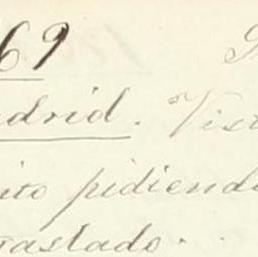 69
adrid. Vist
ito pidiendo
raslado.